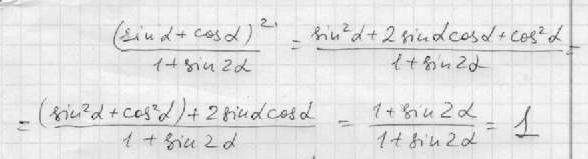 (sinα+cosα)²/1+sin2α = sin²α+2sinαcosα+cos²α/1+sin2α =
= (sin²α+cos²α)+2sinαcosα/1+sin2α = 1+sin2α/1+sin2α = 1